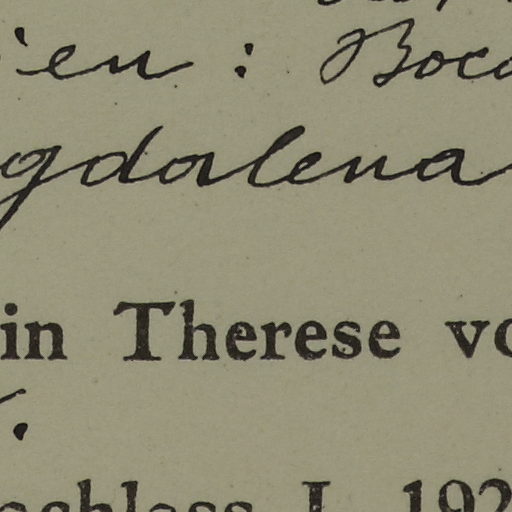 ien : Boca
gdalena
in Therese vo
.
schloss I. 192